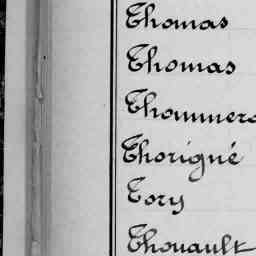 Thomas
Thomas
Thorigné
Tory
Thouault